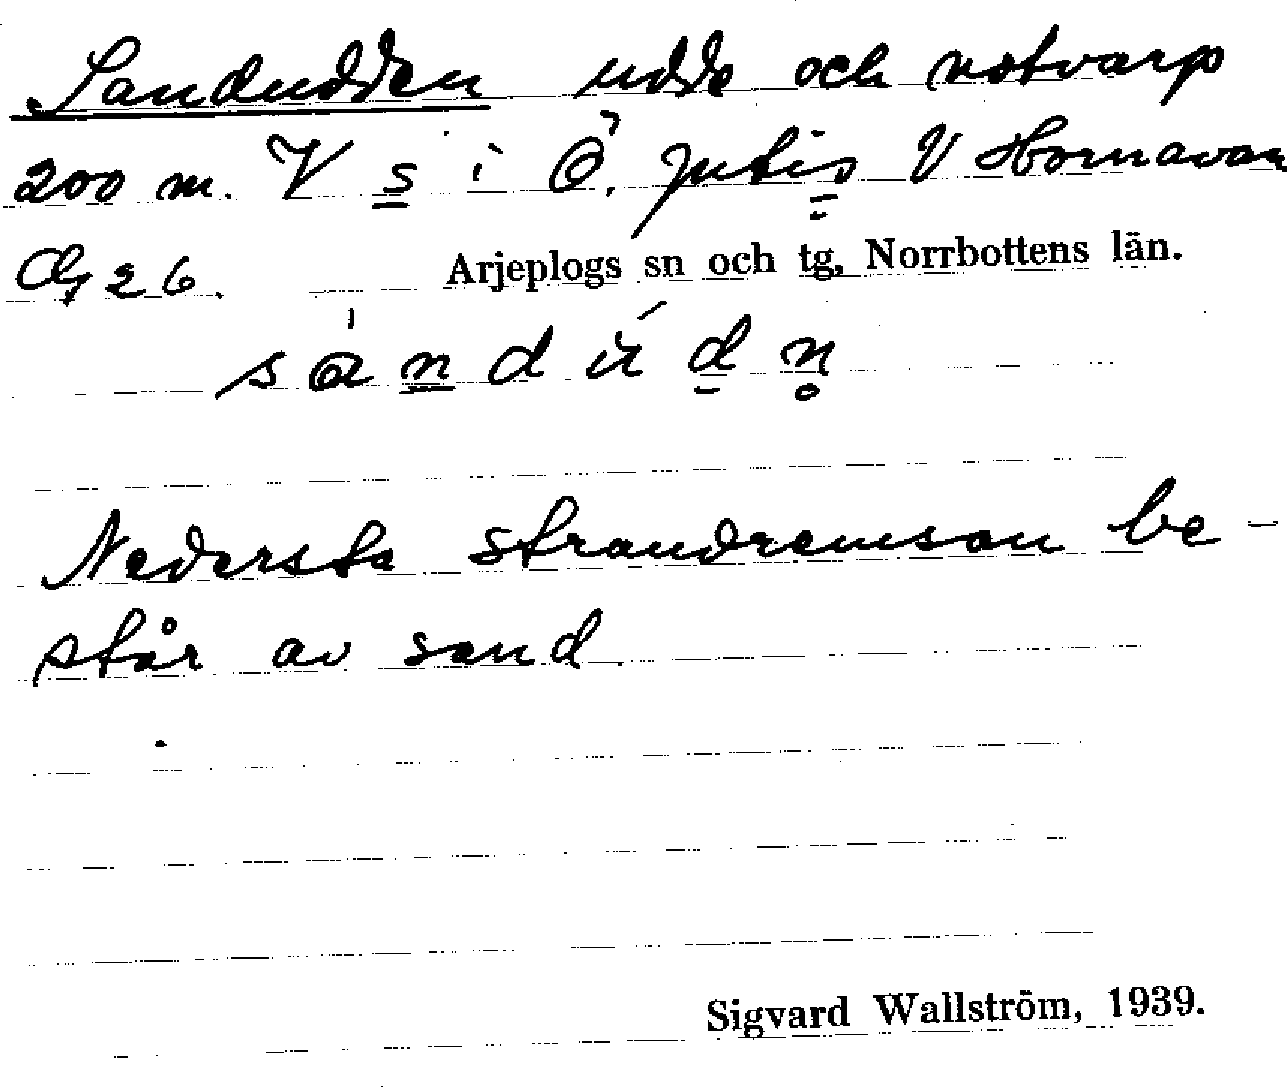 Sandudden udde och notvarp
200 m. V s i Ö. Jutis V Hornavan
26. Arjeplogs sn och tg, Norrbottens län.
sandudn
Nedersta strandremsan be-
står av sand
Sigvard Wallström, 1939.